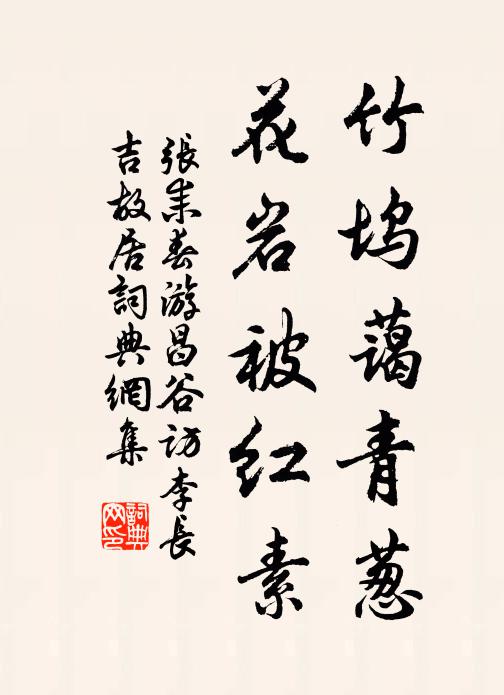 竹坞蔼青葱
花岩被红素
張耒春游昌谷訪李長
吉故居詞典網集
詞典网印